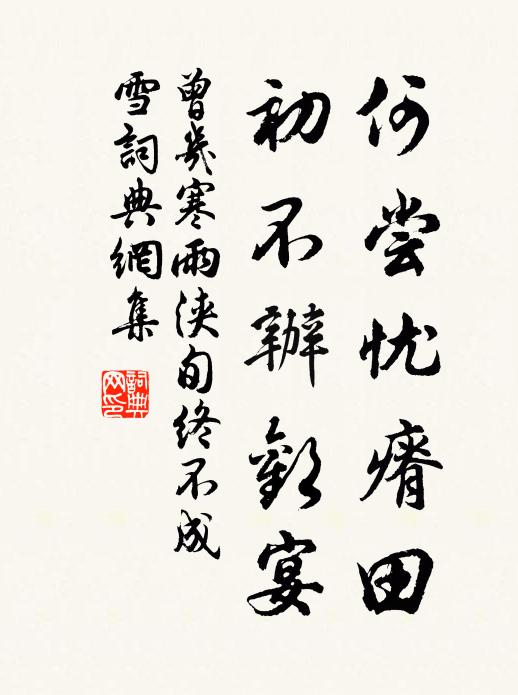 何尝忧瘠田
初不辦歡宴
曾幾寒雨浹旬終不成
雪詞典網集
詞典
网印